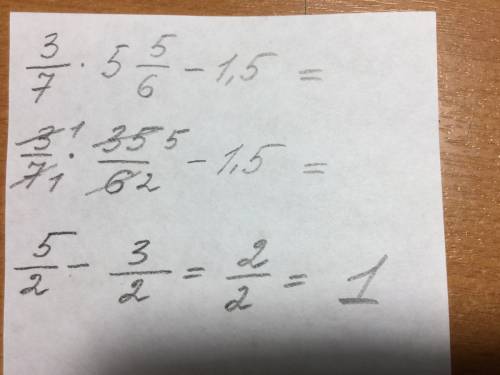 3/7 · 5 5/6 - 1,5 =
3 1/7 1 · 35 5/6 2 - 1,5 =
5/2 - 3/2 = 2/2 = 1